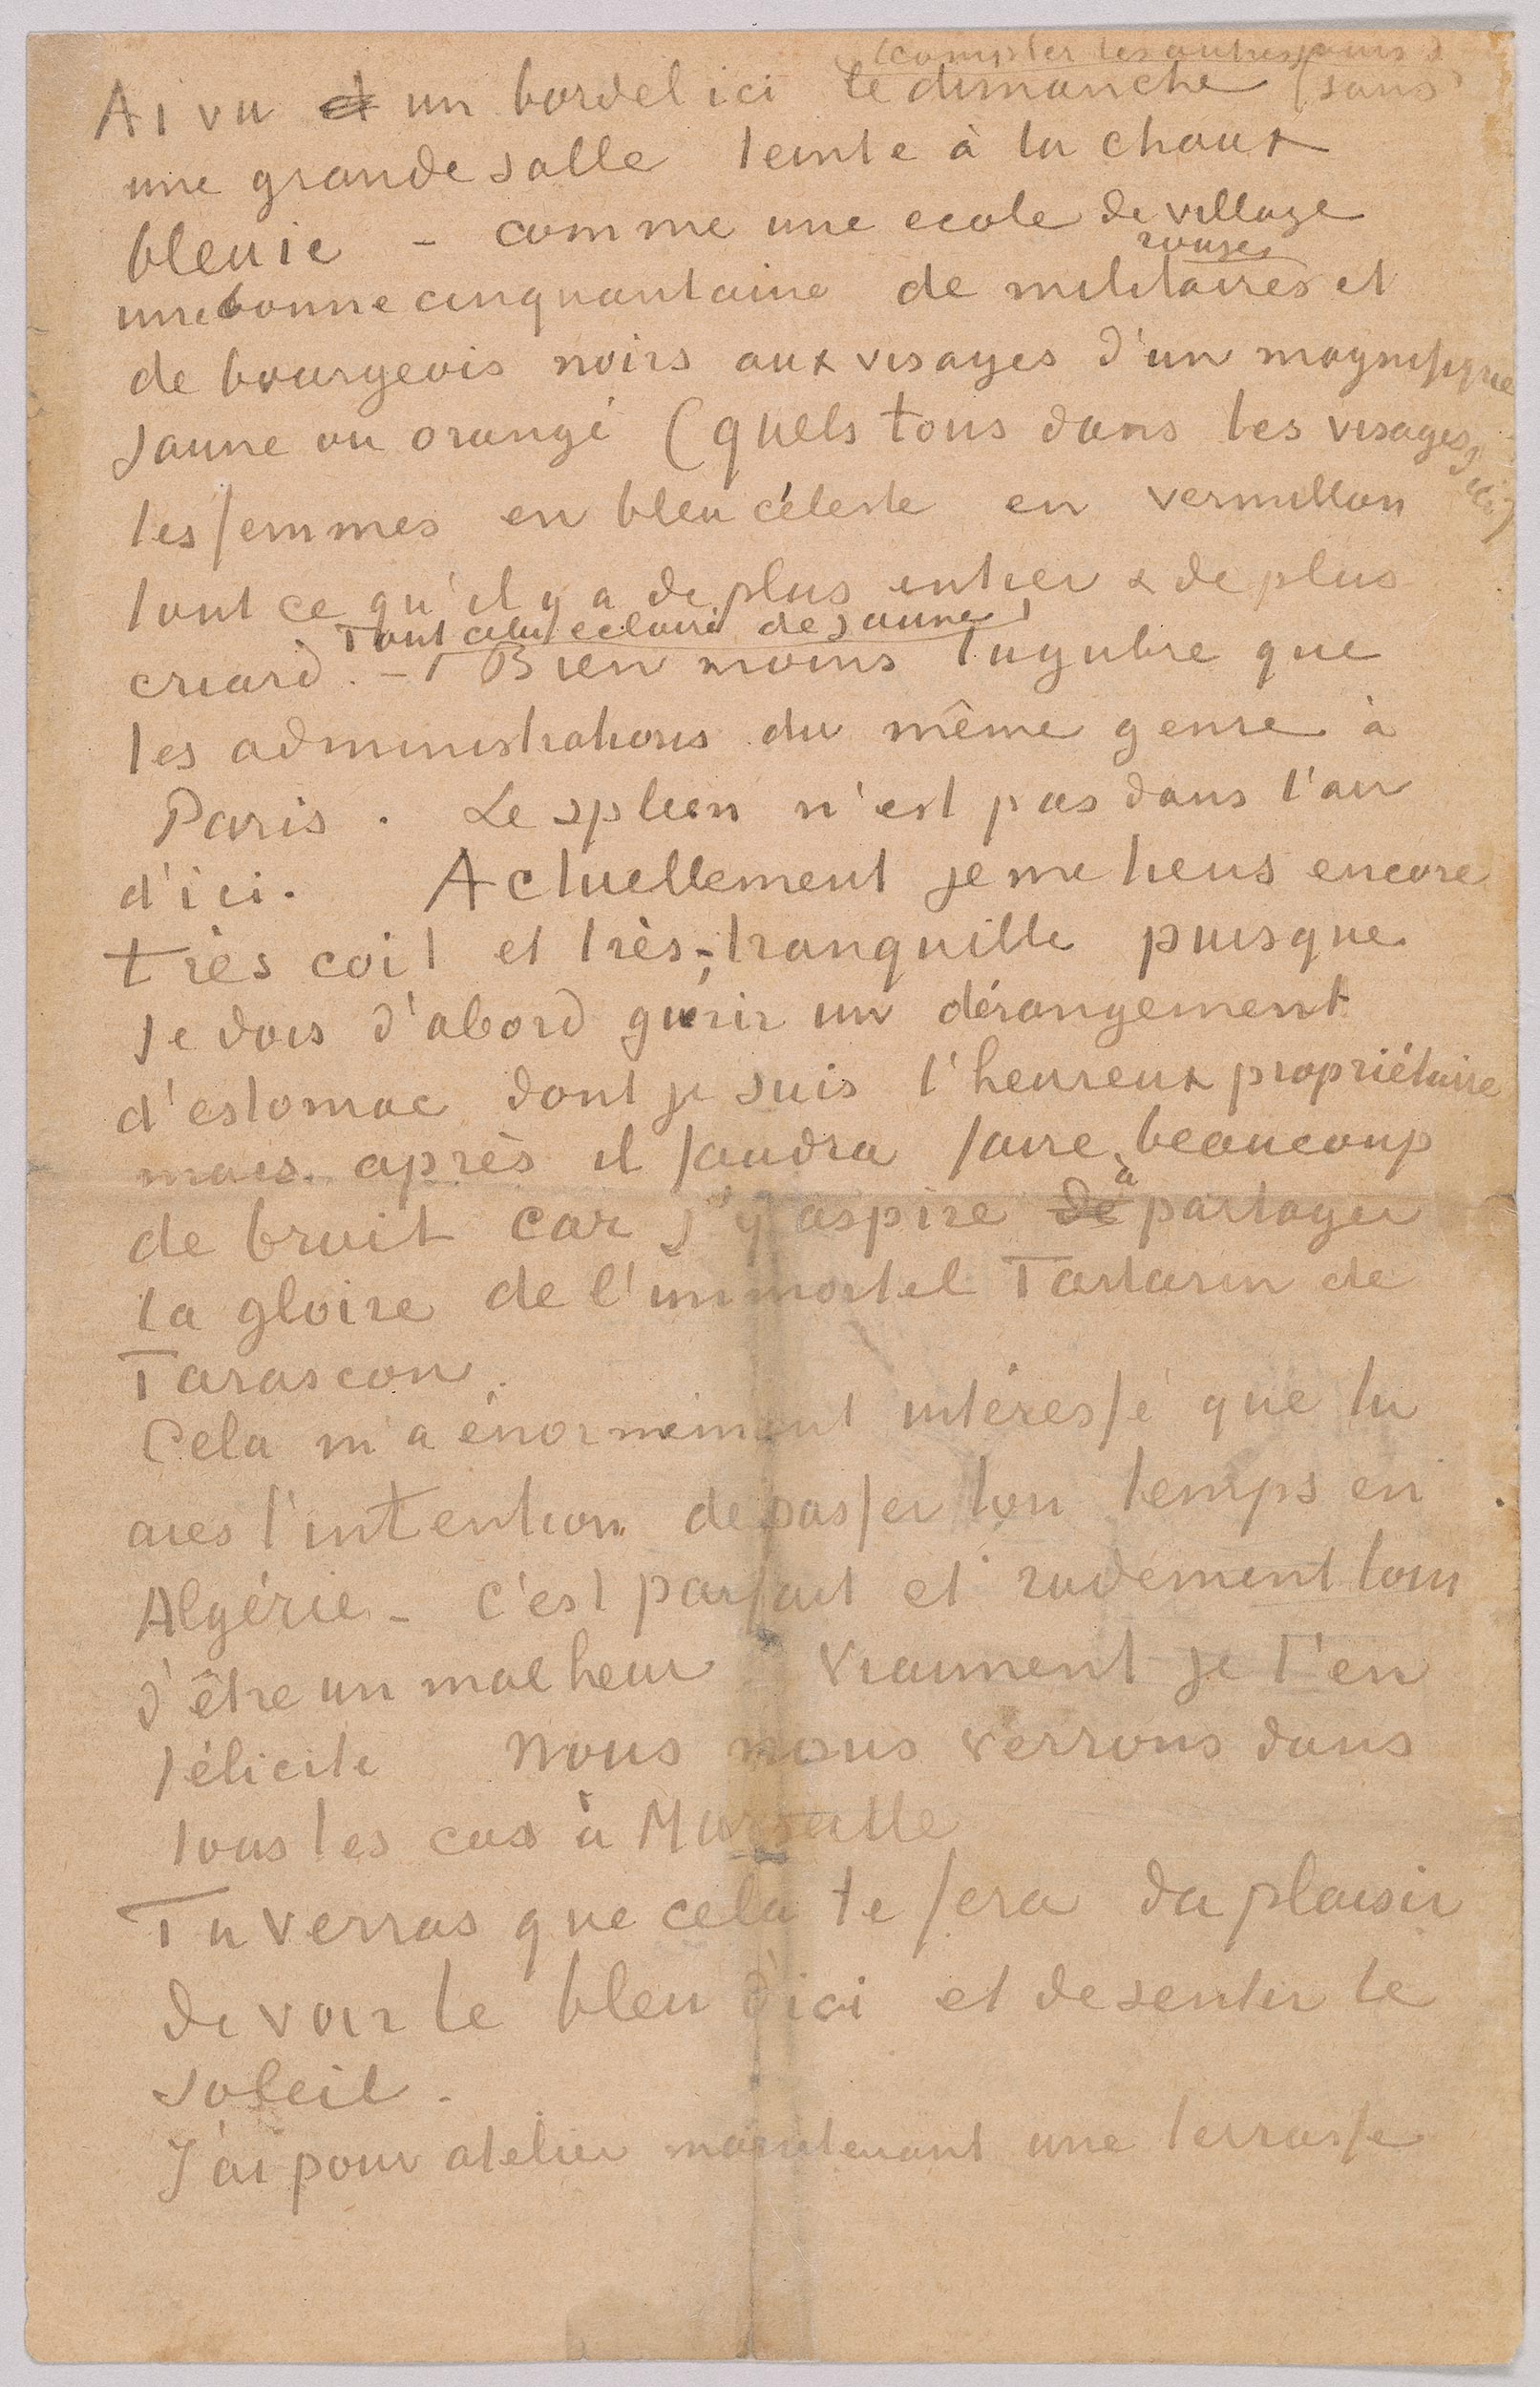 (compter les autres jours)
Ai vu d un bordel ici le dimanche (sans
une grande salle teinte à la chaux
bleuie – comme une ecole de village
rouges
une bonne cinquantaine de militaires et
de bourgeois noirs aux visages d'un magnifique
jaune ou orangé (quels tons dans les visages d'ici)
les femmes en bleu céleste en vermillon
tout ce qu'il y a de plus entier & de plus
Tout cela eclairé de jaune
criard. – Bien moins lugubre que
les administrations du même genre à
Paris. Le spleen n'est pas dans l'air
d'ici. Actuellement je me tiens encore
très coit et très-tranquille puisque
je dois d'abord guérir un dérangement
d'estomac dont je suis l'heureux propriétaire
mais après il faudra faire beaucoup
à
de bruit car j'y aspire de partager
la gloire de l'immortel Tartarin de
Tarascon.
Cela m'a énormément intéressé que tu
aies l'intention de passer ton temps en
Algérie – c'est parfait et rudement loin
d'être un malheur Vraiment je t'en
félicite Nous nous verrons dans
tous les cas à Marseille
Tu verras que cela te fera du plaisir
de voir le bleu d'ici et de sentir le
soleil.
J'ai pour atelier maintenant une terrasse